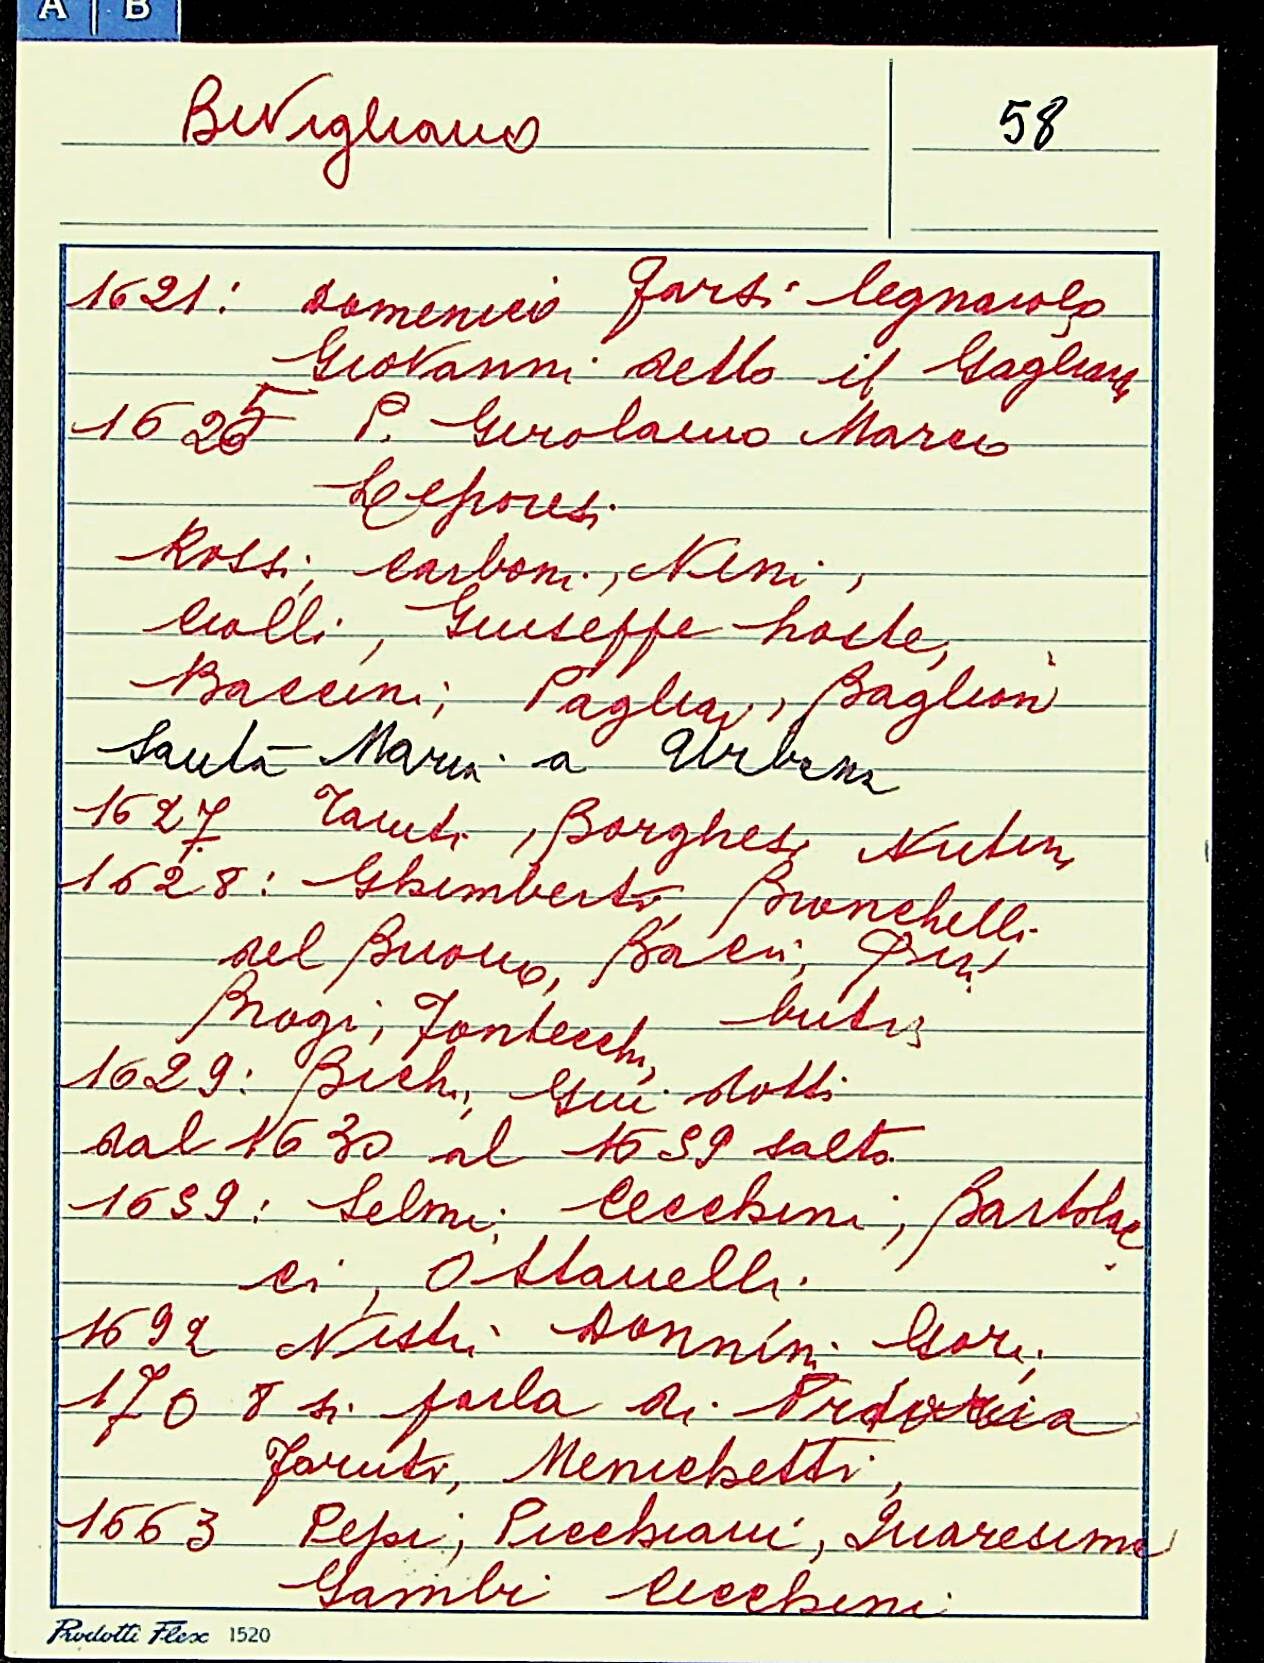 A B
Bivigliano
58
1621: Domenico Farsi legnaiolo
Giovanni detto il Gagliano
1625 P. Girolamo Marco
Leporesi
Rossi, Carboni, Neni,
Ciolli, Giuseppe hoste,
Baccini, Pagliai, Baglioni
Santa Maria a
1627 Taruti, Borghesi
1628: Ghimberti, Bronchelli
del Buono, Baci,
Brogi, Fontecchi,
1629: Bichi, Gui dotti
dal 1630 al 1659 salto
1659: Selmi, Cecchini, Bartolac
ci, Ottanelli
1692 Nesti Donnini Gori,
1708 si parla di
Taruti, Menichetti,
1663 Pepi, Picchiani, Quaresima
Gambi Cecchini
Prodotti Flex 1520